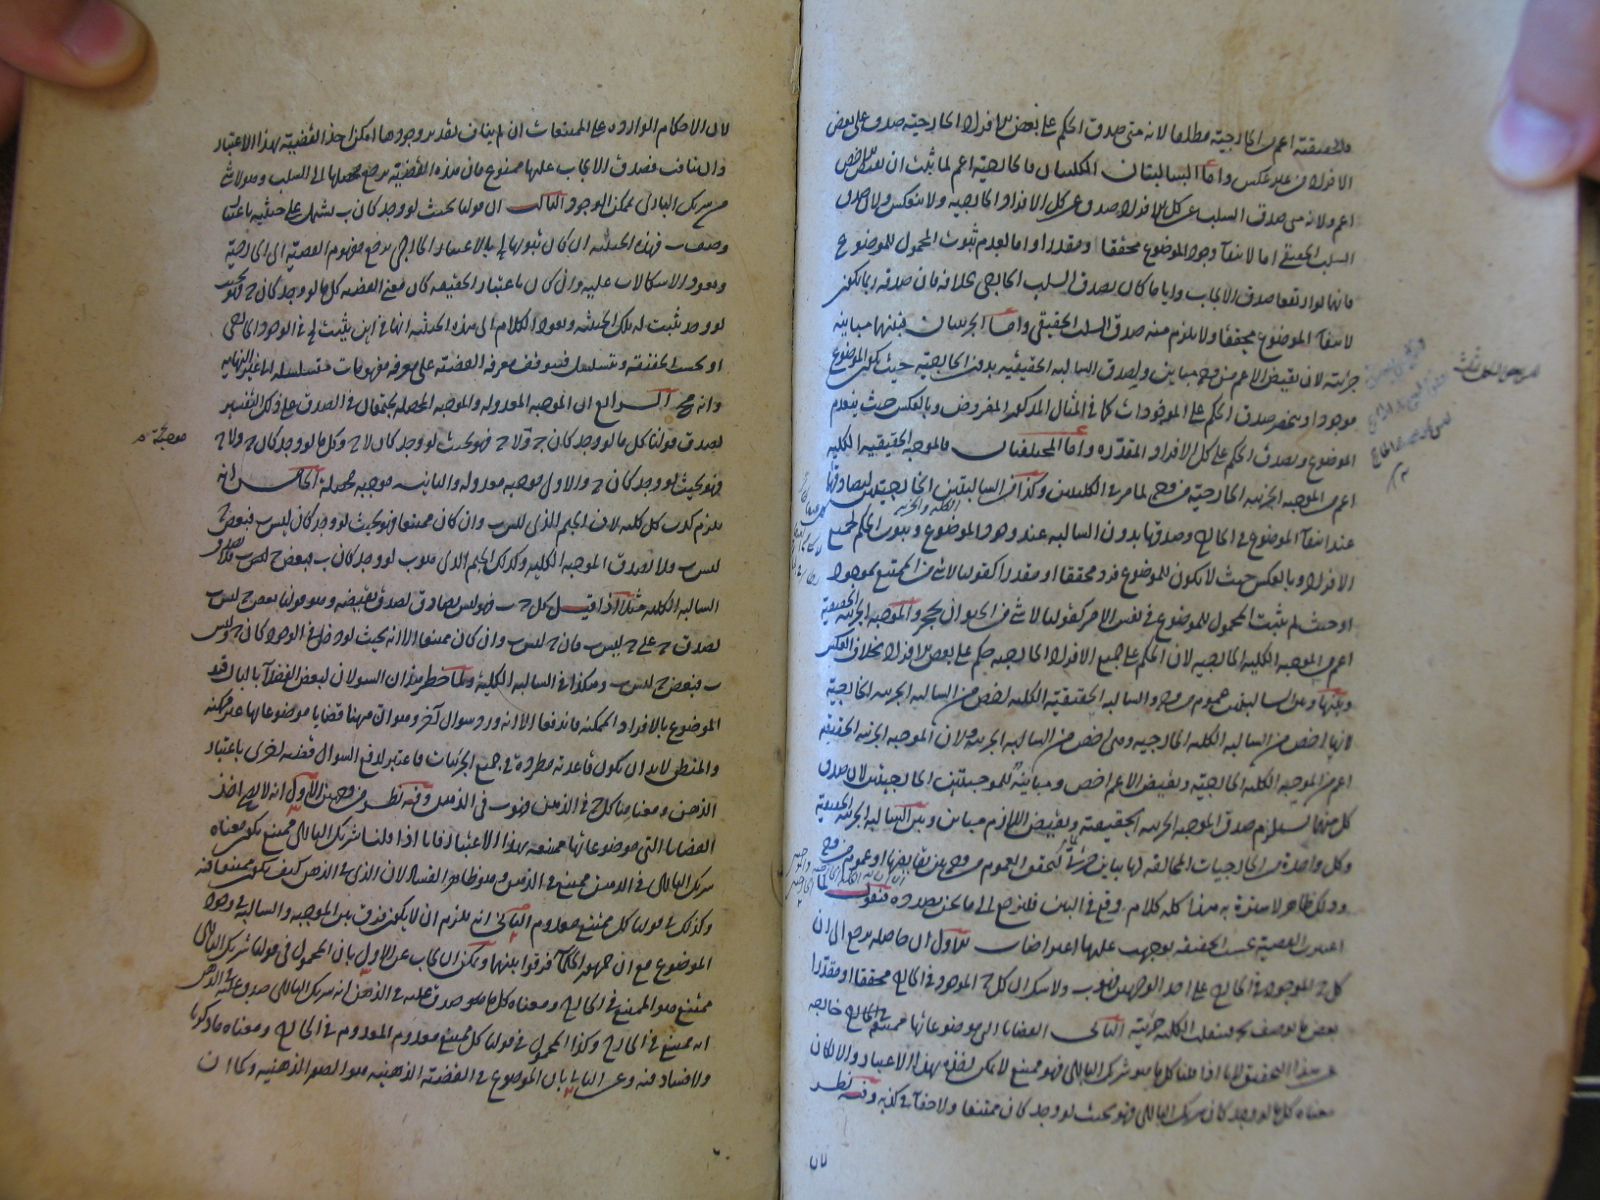 فالحقيقية اعم من الخارجية مطلقا لانه متى صدق الحكم على بعض الافراد الخارجية صدق على بعض
الافراد من غير عكس واما السالبتان الكليتان فالخارجية اعم لما ثبت ان نقيض الاخص
اعم ولانه متى صدق السلب عن كل الافراد صدق عن كل الافراد الخارجية ولا ينعكس ولان صدق
السلب الحقيقي اما لانتفاء وجود الموضوع محققا ومقدرا واما لعدم ثبوت المحمول للموضوع
فانهما لو ارتفعا صدق الايجاب واياما كان يصدق السلب الخارجي بخلافه فان صدقه ربما يكون
لانتفاء الموضوع محققا ولا يلزم منه صدق السلب الحقيقي واما الجزئيتان فبينهما مباينة
جزئية لان نقيض الاعم من وجه مباين ويصدق السالبة الحقيقية بدون الخارجية حيث يكون الموضوع
موجودا وينحصر صدق الحكم على الموجودات كما في المثال المذكور المفروض وبالعكس حيث ينعدم
الموضوع ويصدق الحكم على كل الافراد المقدرة واما المختلفتان فالموجبة الحقيقية الكلية
اعم من الموجبة الجزئية الخارجية من وجه لما مر في الكليتين وكذا من السالبتين الخارجيتين لتصادقها
عند انتفاء الموضوع في الخارج وصدقها بدون السالبة عند وجود الموضوع وثبوت الحكم لجميع
الافراد وبالعكس حيث لا يكون للموضوع فرد محققا او مقدرا كقولنا لا شئ من الممتنع بموجود
او حيث لم يثبت المحمول للموضوع في نفس الامر كقولنا لا شئ من الحيوان بحجر والموجبة الجزئية الحقيقية
اعم من الموجبة الكلية الخارجية لان الحكم على جميع الافراد الخارجية حكم على بعض الافراد بخلاف العكس
وبينها وبين السالبتين عموم من وجه والسالبة الحقيقية الكلية اخص من السالبة الجزئية الخارجية
لانها اخص من السالبة الكلية الخارجية وهي اخص من السالبة الجزئية ولان الموجبة الجزئية الحقيقية
اعم من الموجبة الكلية الخارجية ونقيض الاعم اخص ومباينة للموجبتين الخارجيتين لان صدق
كل منهما يستلزم صدق الموجبة الجزئية الحقيقية ونقيض اللازم مباين وبين السالبة الجزئية الحقيقية
وكل واحدة من الخارجيات المخالفة لها تباين جزئي لتحقق العموم من وجه بين نقايضها او عموم من وجه
وذلك ظاهر لا سترة به هذا كله كلام وقع في البين فلنرجع الى ما نحن بصدده فنقول
اعتبرت القضية بحسب الحقيقة يوجهت عليها اعتراضات الاول ان حاصله يرجع الى ان
كل ج الموجود في الخارج على احد الوجهين فهو ب ولا شك ان كل ج الموجود في الخارج محققا او مقدرا
بعض ما يوصف بج فينقلب الكلية جزئية الثاني القضايا التي موضوعاتها ممتنعة في الخارج خارجة
عن هذا التحقيق لانا اذا قلنا كل ما هو شريك الباري فهو ممتنع لا يمكن اخذه بهذا الاعتبار والا لكان
معناه كل ما لو وجد كان شريك الباري فهو بحيث لو وجد كان ممتنعا ولا خفاء في كذبه وفيه نظر
لان
لان الاحكام الواردة على الممتنعات ان لم يناف تقدير وجودها امكن اخذ القضية بهذا الاعتبار
وان نافت فصدق الايجاب عليها ممنوع فان هذه القضية يرجع محصلها الى السلب وهو لا شئ
من شريك الباري بممكن الوجود الثالث ان قولنا بحيث لو وجد كان ب يشتمل على حيثية باعتبار
وصف ب فهذه الحيثية ان كان ثبوتها لج بالاعتبار الخارجي يرجع مفهوم القضية الى الخارجية
ويعود الاشكالات عليه وان كان باعتبار الحقيقة كان معنى القضية كل ما لو وجد كان ج فهو بحيث
لو وجد ثبت له تلك الحيثية ويعود الكلام الى هذه الحيثية انها في اين يثبت لج في الوجود الخارجي
او بحسب الحقيقة ويتسلسل فيتوقف معرفة القضية على معرفة مفهومات متسلسلة الى غير النهاية
وانه مح الرابع ان الموجبة المعدولة والموجبة المحصلة يجتمعان في الصدق على ذلك التفسير
لصدق قولنا كل ما لو وجد كان ج ولا ج فهو بحيث لو وجد كان لا ج وكل ما لو وجد كان ج ولا ج
فهو بحيث لو وجد كان ج والاول موجبة معدولة والثانية موجبة محصلة الخامس انه
يلزم كذب كل كلية لان الجيم الذي ليس ب وان كان ممتنعا فهو بحيث لو وجد كان ليس ب فبعض ج
ليس ب فلا تصدق الموجبة الكلية وكذلك الجيم الذي هو ب لو وجد كان ب فبعض ج ب فلا تصدق
السالبة الكلية مثلا اذا قيل كل ج ب فهو ليس بصادق لصدق نقيضه وهو قولنا بعض ج ليس ب
لصدق ج على ج ليس ب فان ج ليس ب وان كان ممتنعا الا انه بحيث لو دخل في الوجود كان ج وليس
ب فبعض ج ليس ب وهكذا في السالبة الكلية ولما خطر هذان السؤالان لبعض الفضلاء بالبال قيد
الموضوع بالافراد الممكنة فاندفعا الا انه ورد سوال آخر وهو ان ههنا قضايا موضوعاتها غير ممكنة
والمنطقي لابد ان يكون قاعدته مطردة في جميع الجزئيات فاعتبر لدفع السوال قضية اخرى باعتبار
الذهن ومعناها كل ج في الذهن فهو ب في الذهن وفيه نظر من وجهين الاول انه لا يصح اخذ
القضايا التي موضوعاتها ممتنعة بهذا الاعتبار فانا اذا قلنا شريك الباري ممتنع يكون معناه
شريك الباري في الذهن ممتنع في الذهن وهو ظاهر الفساد لان الذي في الذهن كيف يكون ممتنعا فيه
وكذلك في قولنا كل ممتنع معدوم الثاني انه يلزم ان لا يكون فرق بين الموجبة والسالبة في وجود
الموضوع مع ان جمهور الحكماء فرقوا بينهما ويمكن ان يجاب عن الاول بان المحمول في قولنا شريك الباري
ممتنع هو الممتنع في الخارج ومعناه كل ما هو صدق عليه في الذهن انه شريك الباري صدق عليه في الذهن
انه ممتنع في الخارج وكذا المحمول في قولنا كل ممتنع معدوم المعدوم في الخارج ومعناه ما ذكرنا
ولا فساد فيه وعن الثاني بان الموضوع في القضية الذهنية هو الصور الذهنية وكما ان